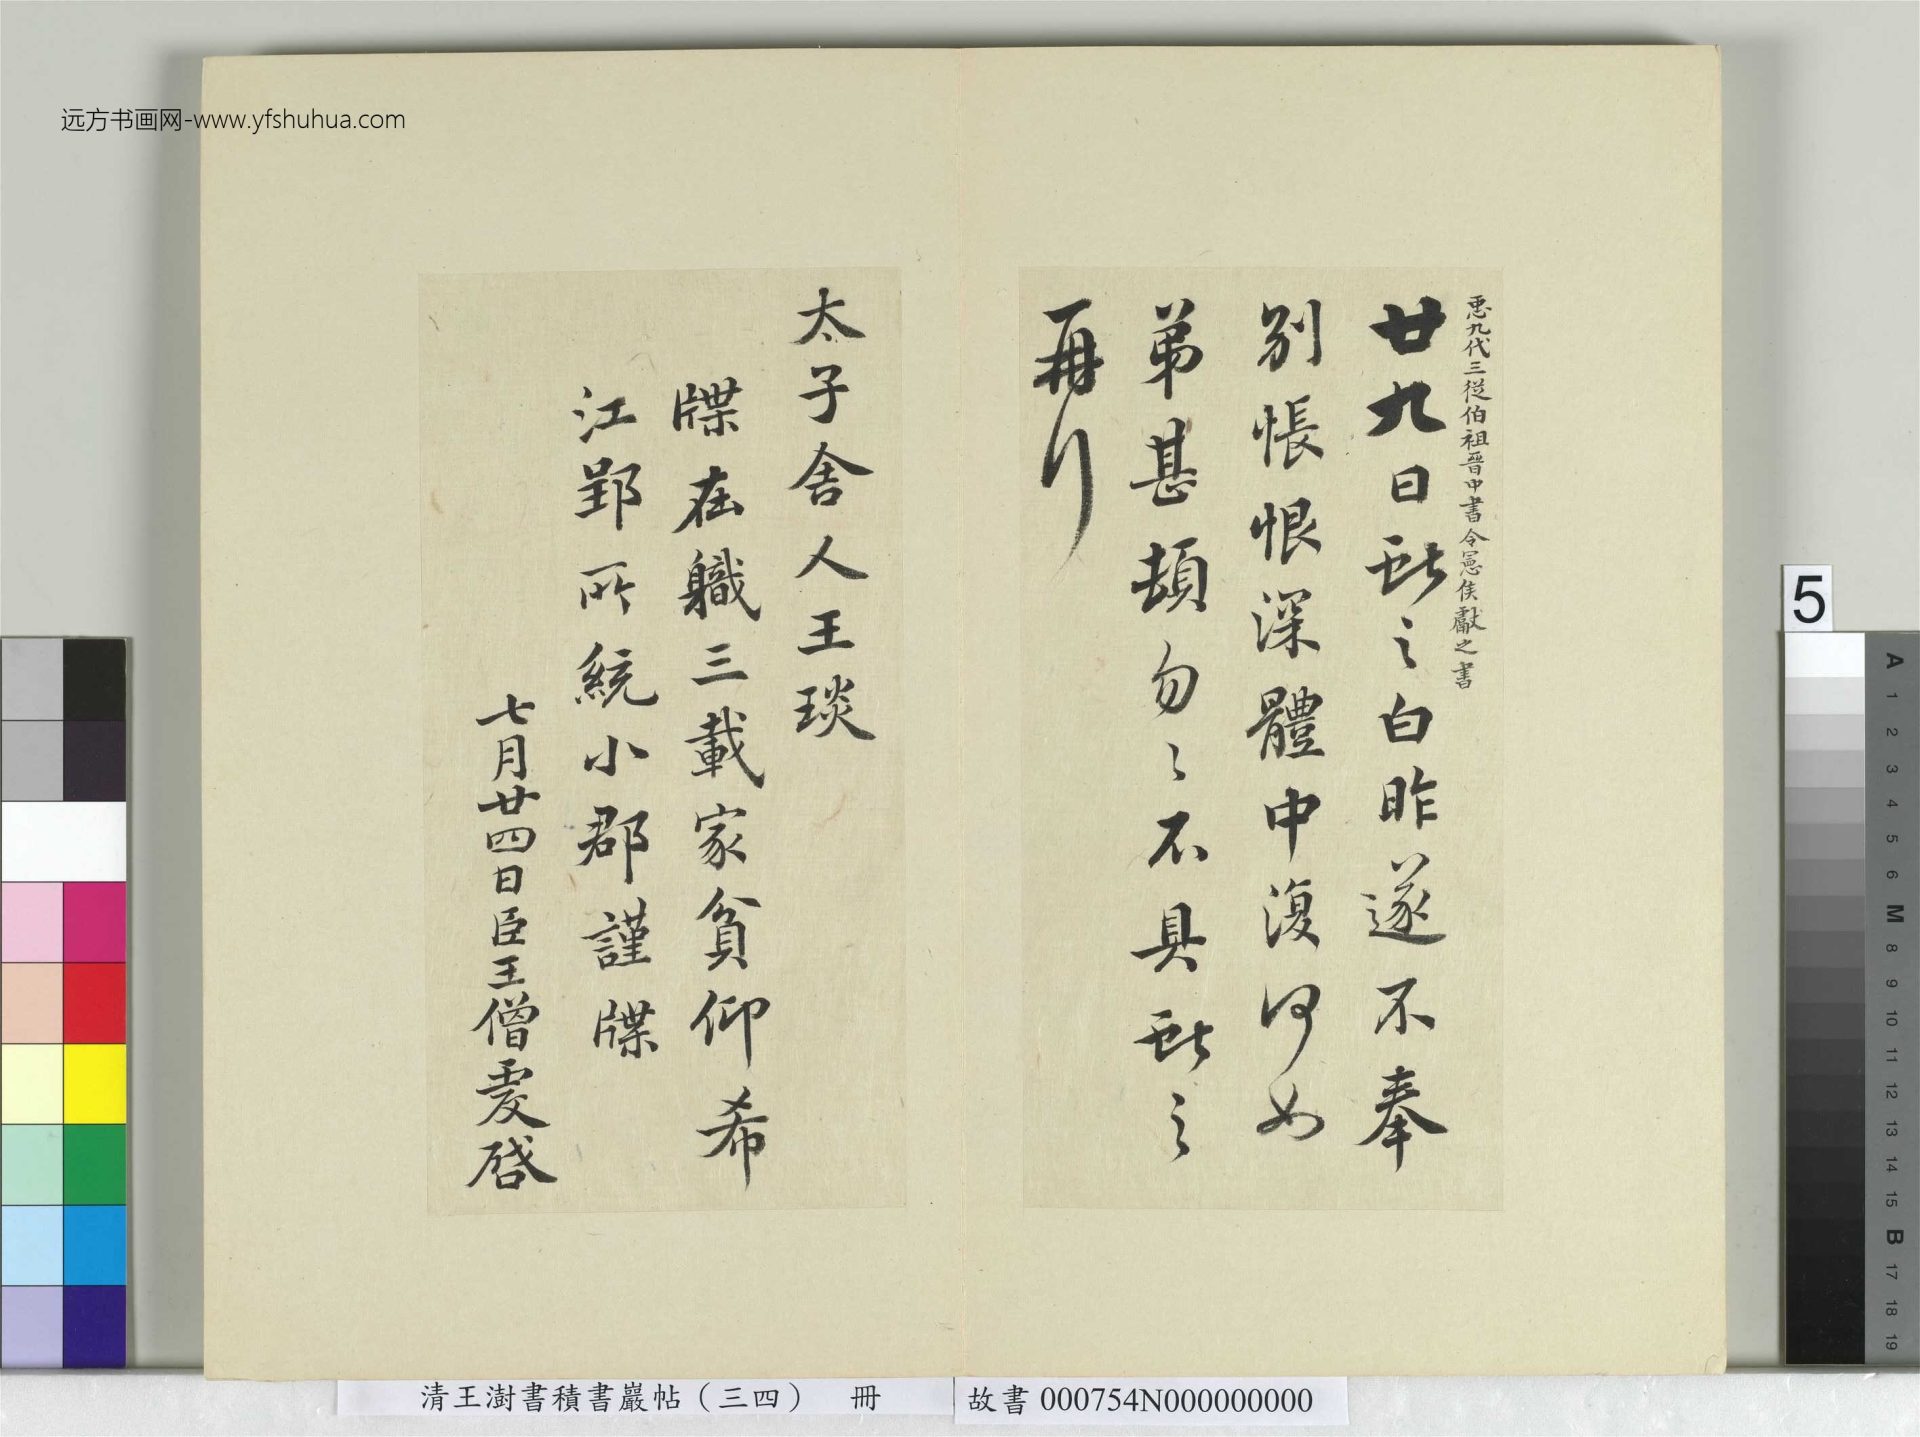 远方书画网-www.yfshuhua.com
悥九代三從伯祖晉中書令憲侯獻之書
廿九日獻之白昨遂不奉
別悵恨深體中復何如
弟甚頓勿勿不具獻之
再拜
太子舍人王琰
牒在職三載家貧仰希
江郢所統小郡謹牒
七月廿四日臣王僧虔啓
5
A
1
2
3
4
5
6
M
8
9
10
11
12
13
14
15
B
17
18
19
清王澍書積書巖帖（三四）　冊
故書 000754N000000000